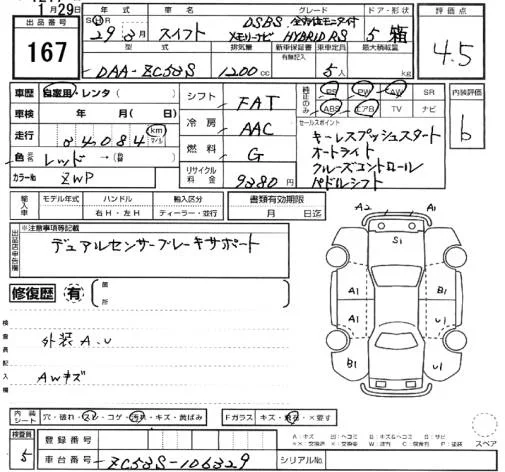 1月29日
出品番号
167
年式 車名 グレード ドア・形状
SⒽR 29年3月 スイフト DSBS. 全方位モニタ付 メモリーナビ HYBRID RS 5 箱
評価点
4.5
型式 排気量 新車保証書 有無記入 乗車定員 最大積載量
DAA-ZC53S 1200cc 5人 kg
車歴 自家用・レンタ( )
車検 年 月(日)
走行 04084 km マイル
色 元色 レッド→(替)
カラーNo ZWP
シフト FAT
冷房 AAC
燃料 G
リサイクル料金 9280円
純正のみ PS PW AW SR
ABS エアB TV ナビ
内装評価
b
セールスポイント
キーレスプッシュスタート
オートライト
クルーズコントロール
パドルシフト
輸入車 モデル年式 ハンドル 輸入区分
右H・左H ディーラー・並行
書類有効期限
月 日迄
出品店申告欄
※注意事項等記載
デュアルセンサーブレーキサポート
修復歴 有 箇所
検査員記入欄
外装A.U
AWキズ
A2 A1
S1
A1 B1
A1 U1
B1 U1
内装シート 穴・破れ・スレ・コゲ・汚れ・キズ・黄ばみ
Fガラス キズ・飛石・×要す
A:キズ U:ヘコミ B:キズ&ヘコミ S:サビ
スペア
検査員
5
登録番号
車台番号 ZC53S-106329 シリアルNo.